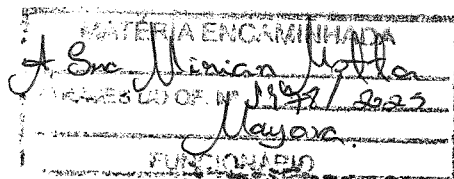 MATÉRIA ENCAMINHADA
A Sra Mirian Motta
ATRAVÉS DO OF. Nº / 2025
Mayara
FUNCIONÁRIO